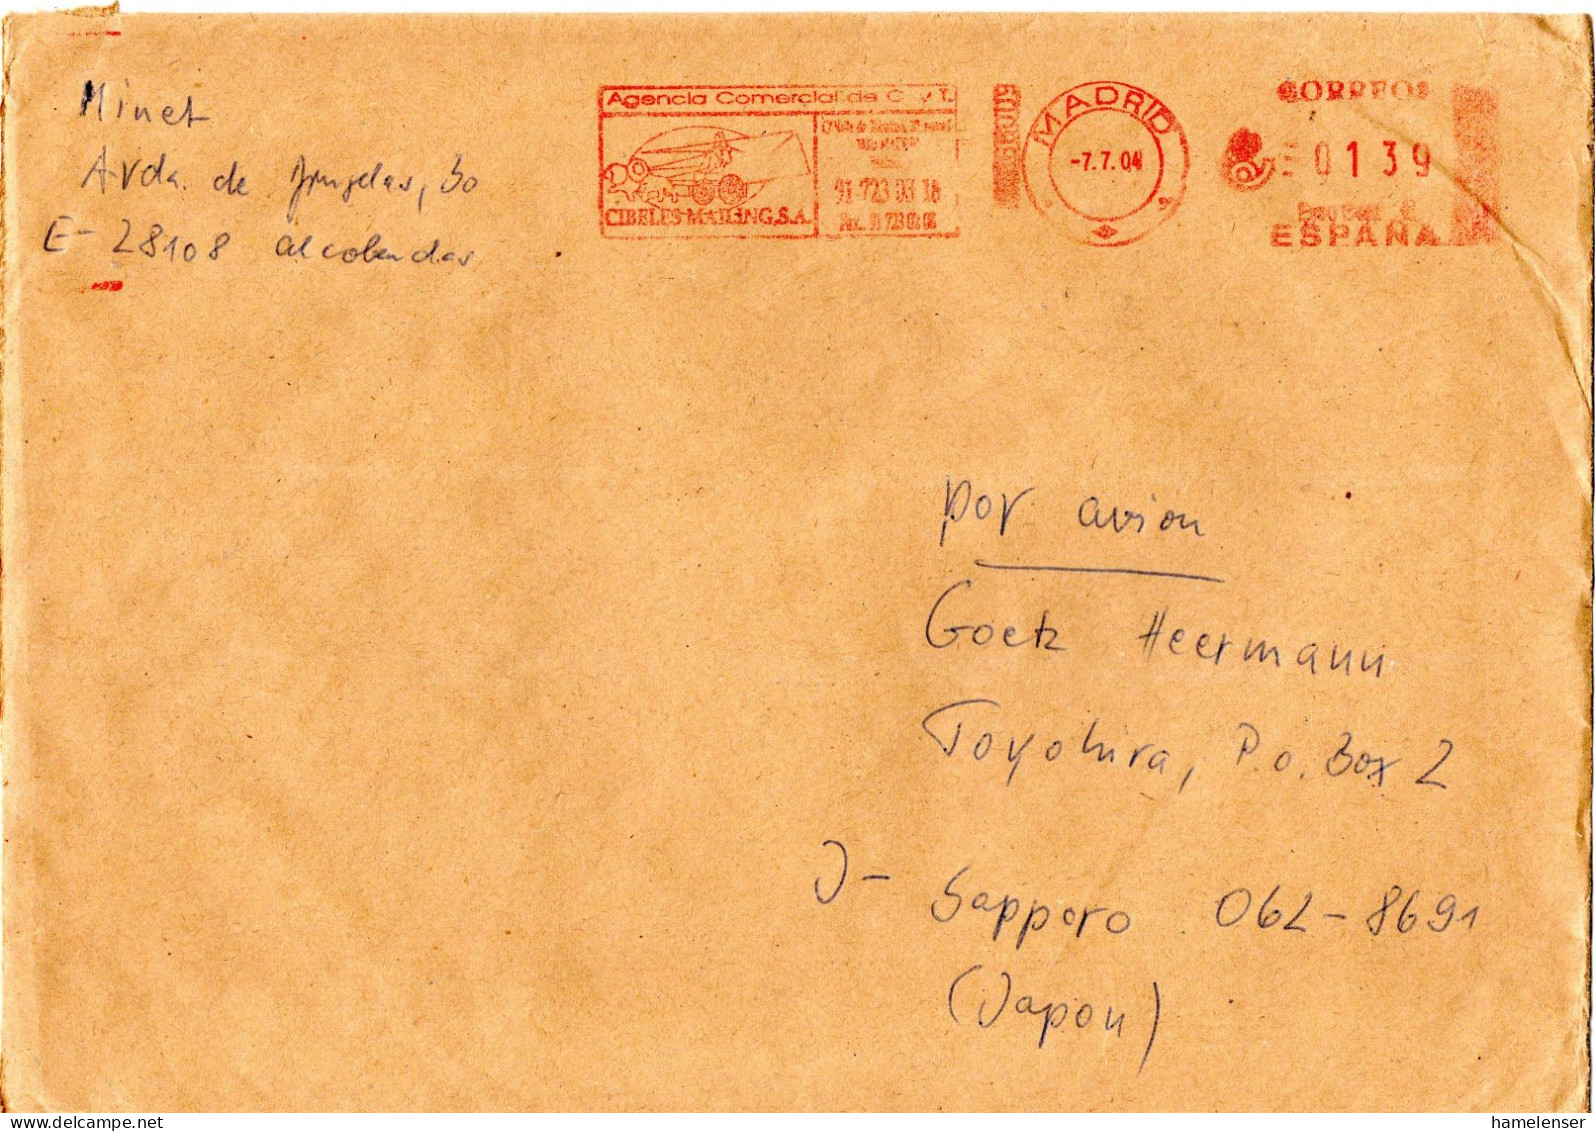 Minet
Avda. de Bruselas, 30
E- 28108 Alcobendas
Agencia Comercial de C. y T.
CIBELES MAILING, S.A.
91-723 03 18
MADRID
-7.7.04
CORREOS
0139
ESPAÑA
por avion
Goetz Heermann
Toyohira, P.o. Box 2
J- Sapporo 062-8691
(Japon)
delcampe.net
hamelenser